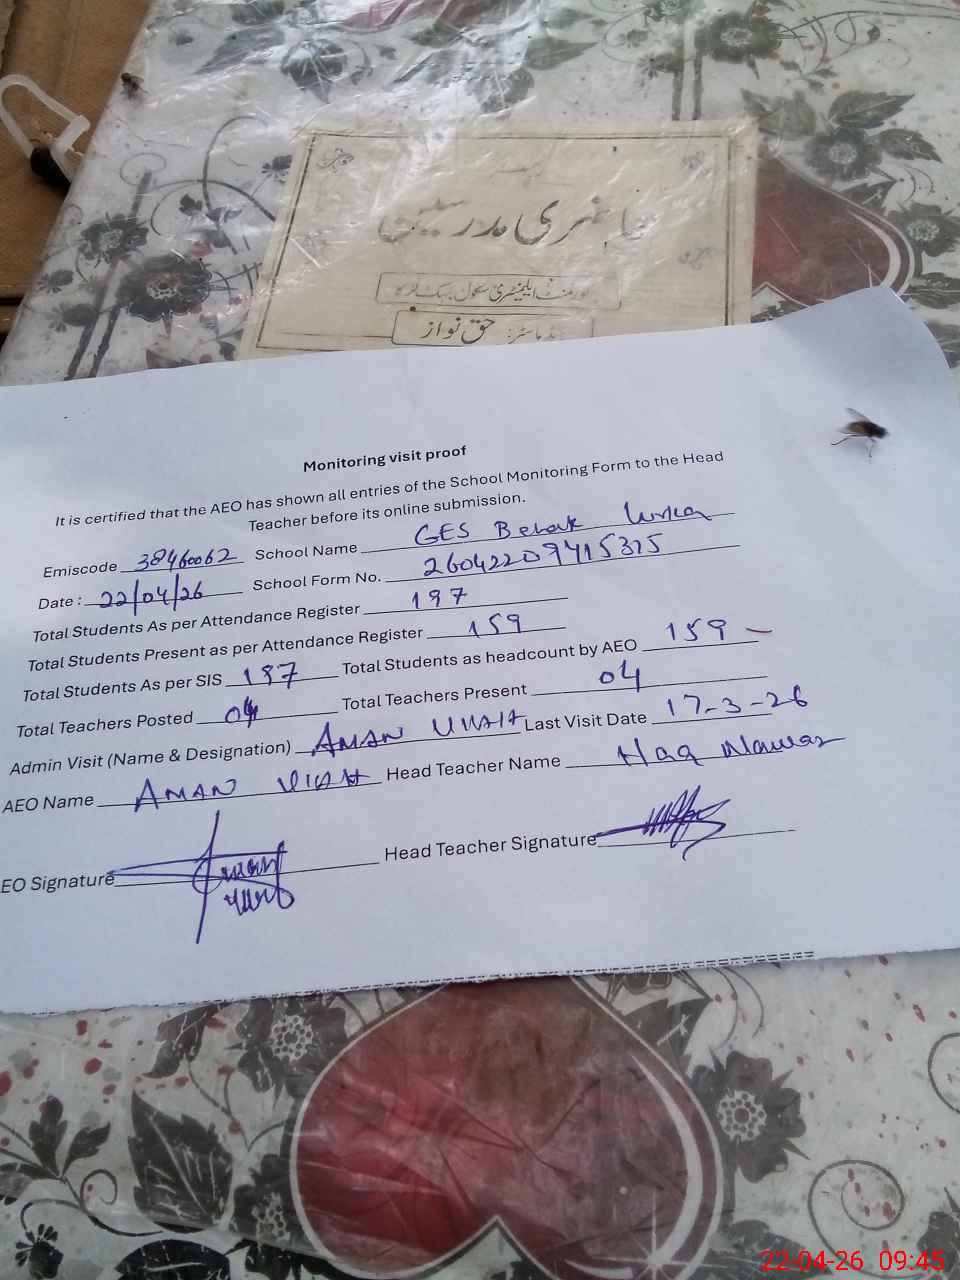 حاضری مدرسین
گورنمنٹ ایلیمنٹری سکول بہک لڑکا
ہیڈ ماسٹر: حق نواز
Monitoring visit proof
It is certified that the AEO has shown all entries of the School Monitoring Form to the Head
Teacher before its online submission.
Emiscode 38460062 School Name GES Behak
Date : 22/04/26 School Form No. 26042209415315
Total Students As per Attendance Register 197
Total Students Present as per Attendance Register 159
Total Students As per SIS 197 Total Students as headcount by AEO 159
Total Teachers Posted 04 Total Teachers Present 04
Admin Visit (Name & Designation) AMAN Last Visit Date 17-3-26
AEO Name AMAN Head Teacher Name Haq Nawaz
EO Signature Head Teacher Signature
22-04-26 09:45